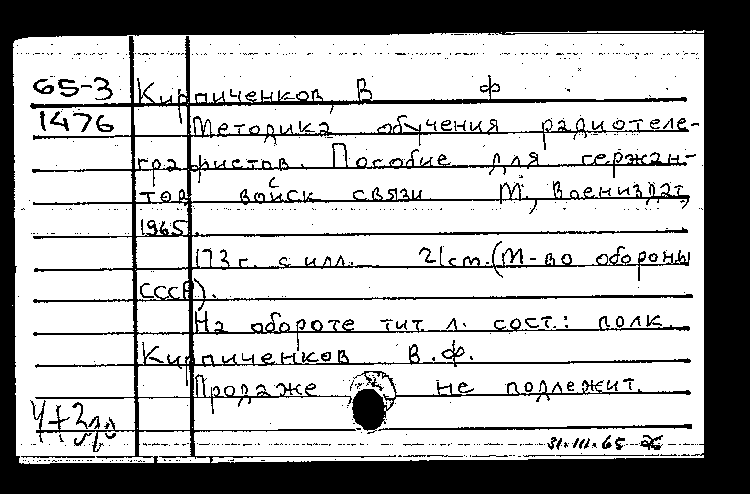 65-3 Кирпиченков, В ф
1476 Методика обучения радиотеле-
графистов. Пособие для сержан-
тов войск связи М., Воениздат,
1965.
173 г. с илл. 21 cm. (М-во обороны
СССР).
На обороте тит л. сост.: полк.
Кирпиченков В.ф.
Продаже не подлежит.
31.III.65